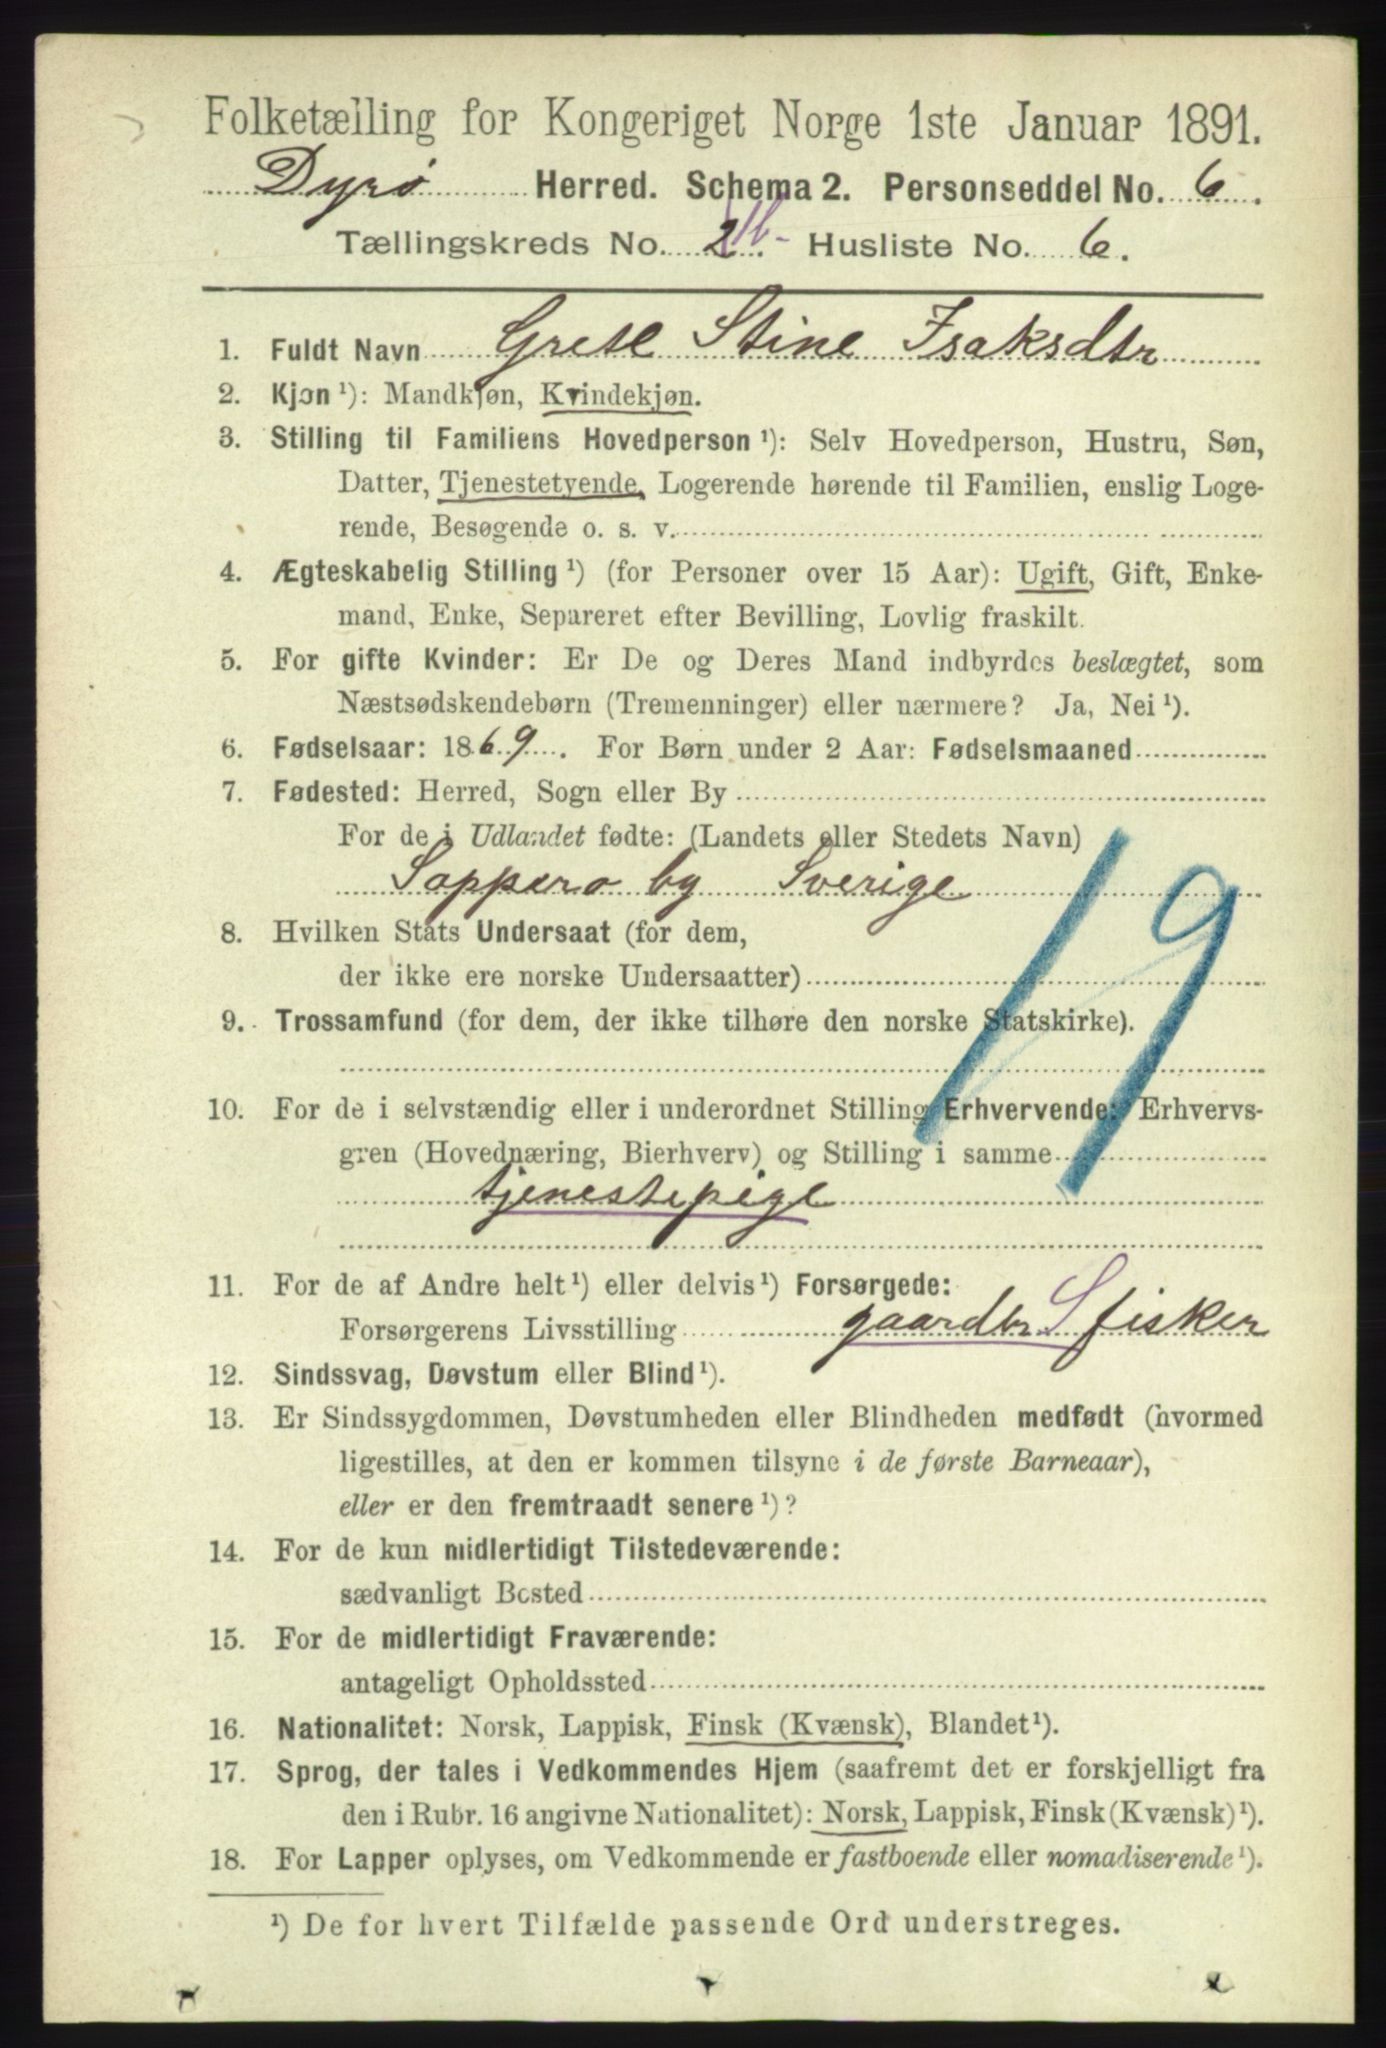 Folketælling for Kongeriget Norge 1ste Januar 1891.
Dyrø Herred. Schema 2. Personseddel No. 6.
Tællingskreds No. 2. Husliste No. 6.
1. Fuldt Navn Grete Stine Isaksdtr
2. Kjøn ¹): Mandkjøn, Kvindekjøn.
3. Stilling til Familiens Hovedperson ¹): Selv Hovedperson, Hustru, Søn,
Datter, Tjenestetyende, Logerende hørende til Familien, enslig Loge-
rende, Besøgende o. s. v.
4. Ægteskabelig Stilling ¹) (for Personer over 15 Aar): Ugift, Gift, Enke-
mand, Enke, Separeret efter Bevilling, Lovlig fraskilt.
5. For gifte Kvinder: Er De og Deres Mand indbyrdes beslægtet, som
Næstsødskendebørn (Tremenninger) eller nærmere? Ja, Nei ¹).
6. Fødselsaar: 1869. For Børn under 2 Aar: Fødselsmaaned
7. Fødested: Herred, Sogn eller By
For de i Udlandet fødte: (Landets eller Stedets Navn)
Soppero by Sverige
19
8. Hvilken Stats Undersaat (for dem,
der ikke ere norske Undersaatter)
9. Trossamfund (for dem, der ikke tilhøre den norske Statskirke).
10. For de i selvstændig eller i underordnet Stilling Erhvervende: Erhvervs-
gren (Hovednæring, Bierhverv) og Stilling i samme
tjenestepige
11. For de af Andre helt ¹) eller delvis ¹) Forsørgede:
Forsørgerens Livsstilling gaardbr S fisker
12. Sindssvag, Døvstum eller Blind ¹).
13. Er Sindssygdommen, Døvstumheden eller Blindheden medfødt (hvormed
ligestilles, at den er kommen tilsyne i de første Barneaar),
eller er den fremtraadt senere ¹)?
14. For de kun midlertidigt Tilstedeværende:
sædvanligt Bosted
15. For de midlertidigt Fraværende:
antageligt Opholdssted
16. Nationalitet: Norsk, Lappisk, Finsk (Kvænsk), Blandet ¹).
17. Sprog, der tales i Vedkommendes Hjem (saafremt det er forskjelligt fra
den i Rubr. 16 angivne Nationalitet): Norsk, Lappisk, Finsk (Kvænsk) ¹).
18. For Lapper oplyses, om Vedkommende er fastboende eller nomadiserende ¹).
¹) De for hvert Tilfælde passende Ord understreges.